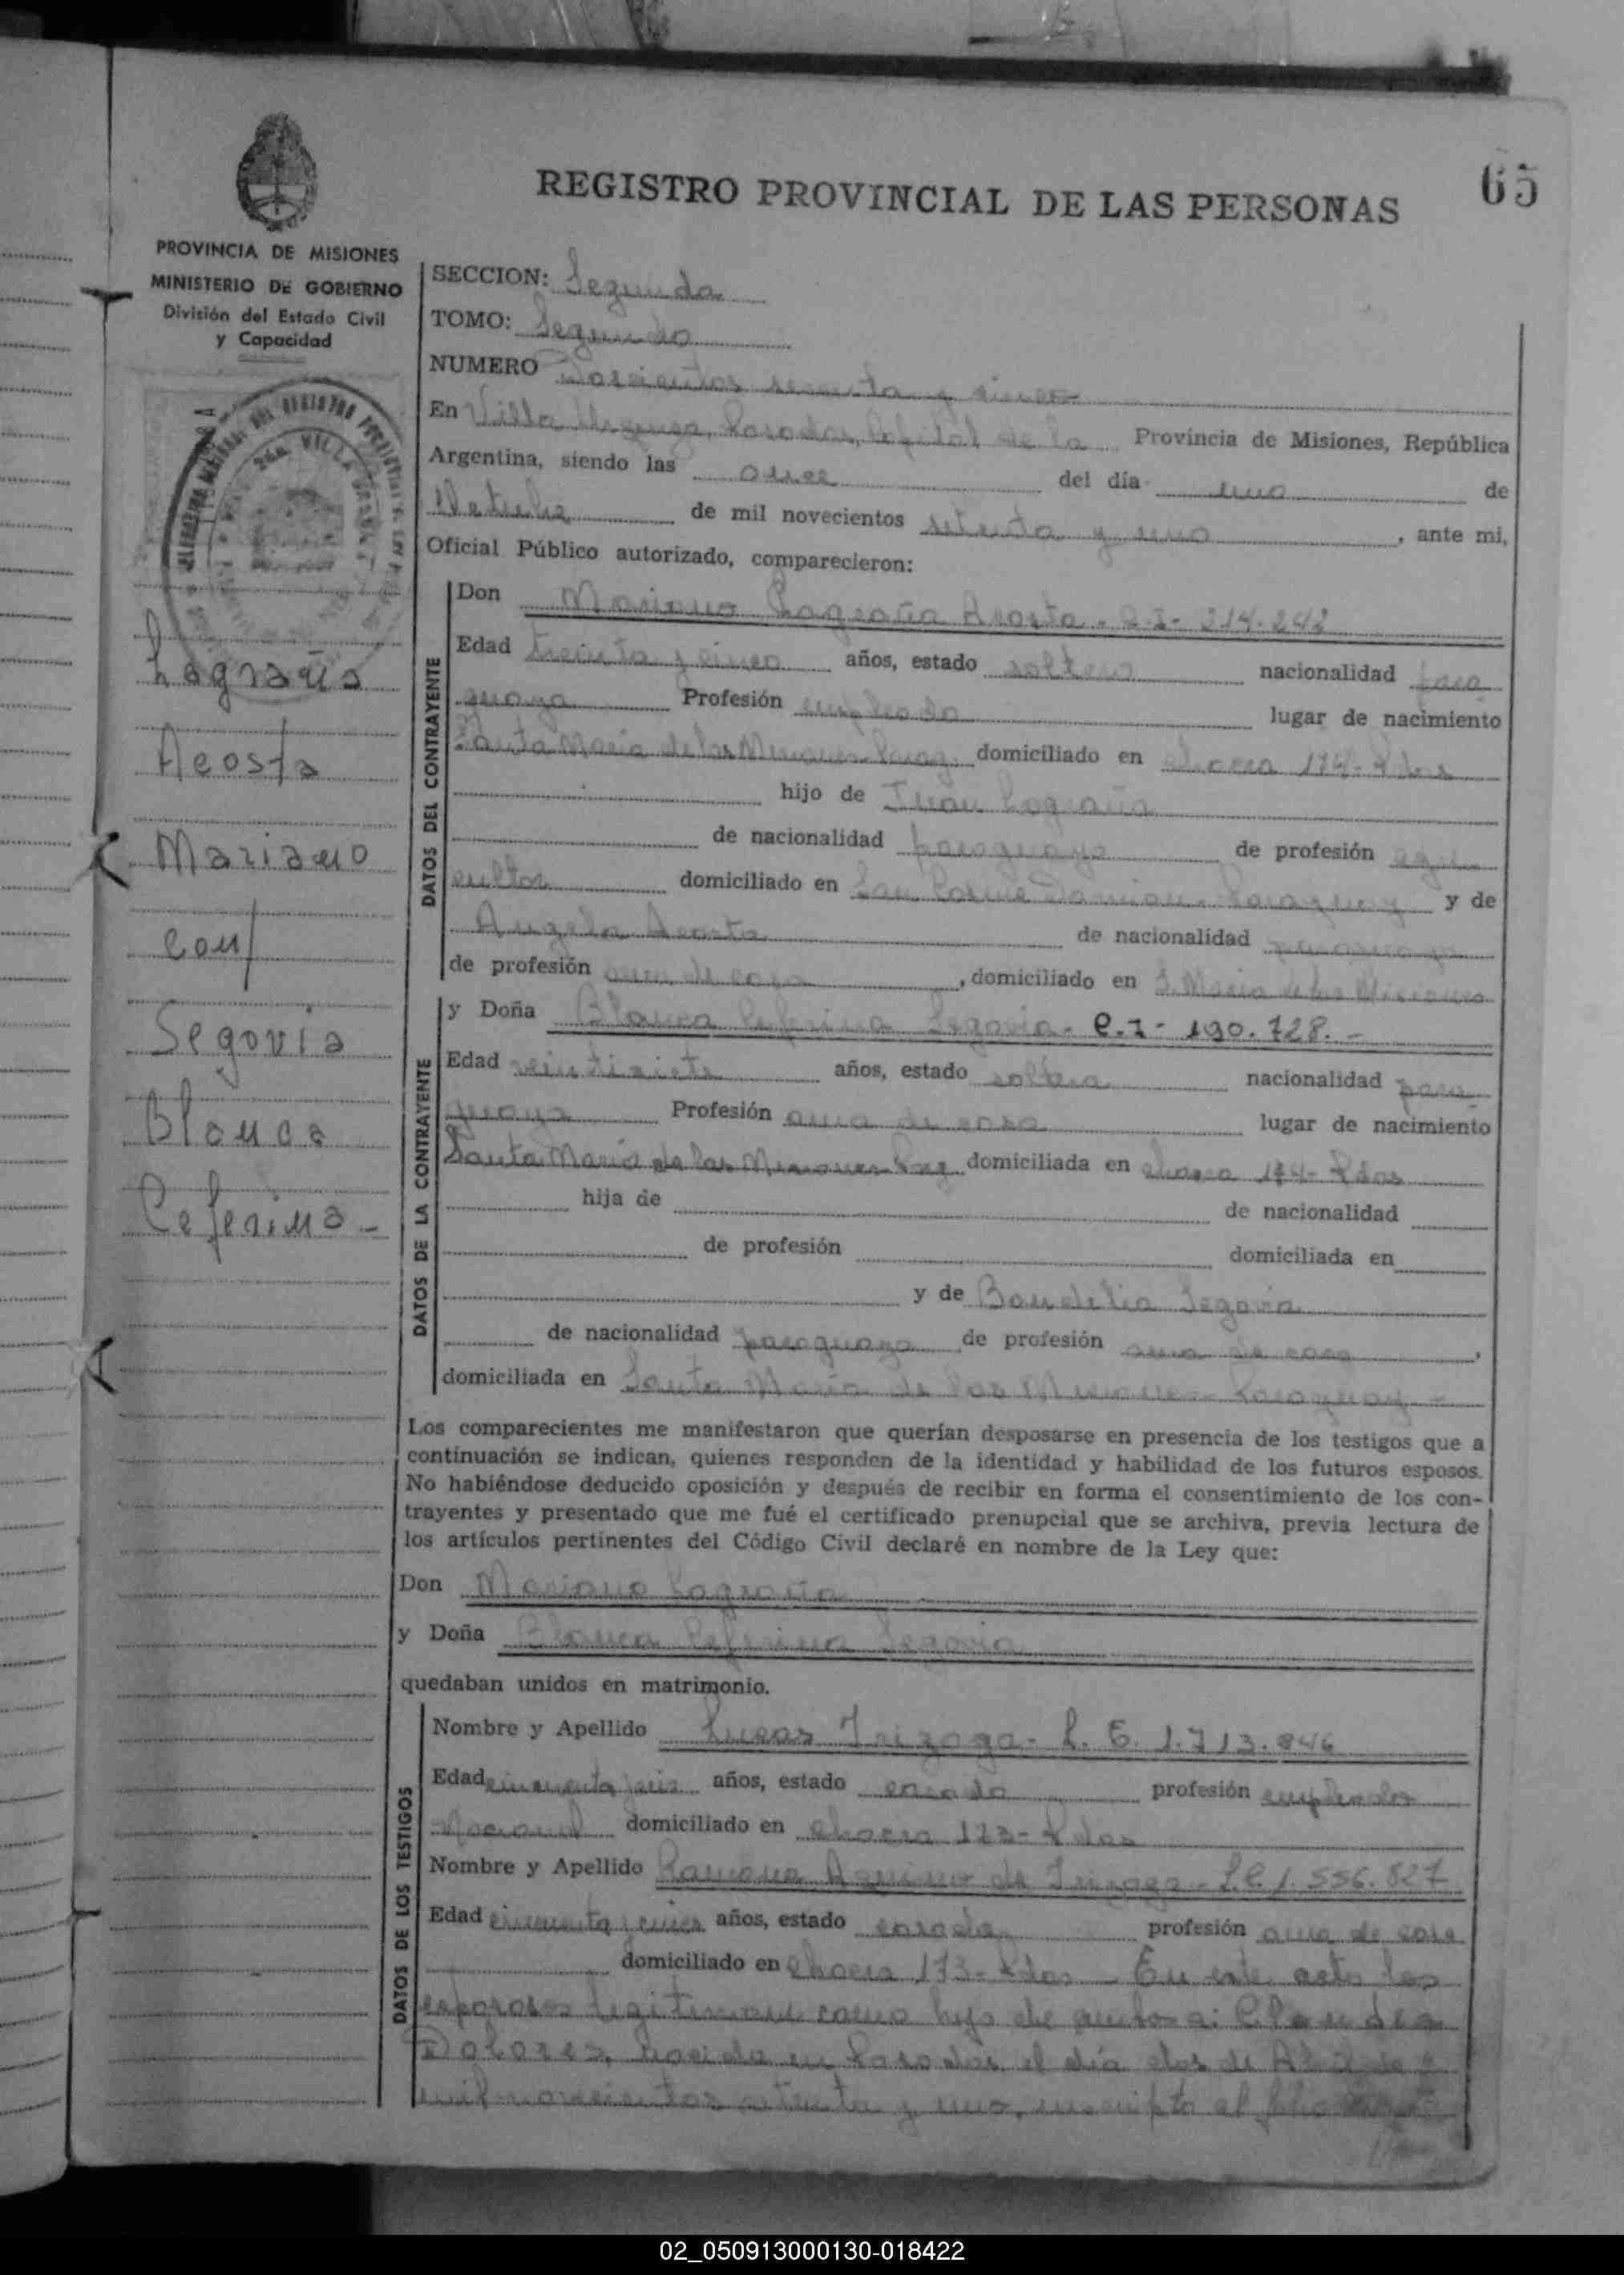 65
REGISTRO PROVINCIAL DE LAS PERSONAS
PROVINCIA DE MISIONES
MINISTERIO DE GOBIERNO
División del Estado Civil
y Capacidad
Lagraña
Acosta
Mariano
con/
Segovia
Blanca
Ceferina -
SECCION: Segunda
TOMO: Segundo
NUMERO Doscientos sesenta y cinco
En Villa Urquiza, Posadas, Capital de la Provincia de Misiones, República
Argentina, siendo las once del día uno de
Octubre de mil novecientos setenta y uno, ante mi,
Oficial Público autorizado, comparecieron:
DATOS DEL CONTRAYENTE
Don Mariano Lagraña Acosta - C.I- 214.242
Edad treinta y cinco años, estado soltero nacionalidad para
guaya Profesión empleado lugar de nacimiento
Santa María de las Misiones Parag. domiciliado en chacra 174- Pdas
hijo de Juan Lagraña
de nacionalidad paraguaya de profesión agri
cultor domiciliado en San Cosme Damian - Paraguay y de
Angela Acosta de nacionalidad paraguaya
de profesión ama de casa, domiciliado en S. María de las Misiones
DATOS DE LA CONTRAYENTE
y Doña Blanca Ceferina Segovia - C.I - 190.728. -
Edad veintisiete años, estado soltera nacionalidad para
guaya Profesión ama de casa lugar de nacimiento
Santa María de las Misiones Parg domiciliada en chacra 174- Pdas
hija de de nacionalidad
de profesión domiciliada en
y de Baudelia Segovia
de nacionalidad paraguaya de profesión ama de casa,
domiciliada en Santa María de las Misiones - Paraguay -
Los comparecientes me manifestaron que querían desposarse en presencia de los testigos que a
continuación se indican, quienes responden de la identidad y habilidad de los futuros esposos.
No habiéndose deducido oposición y después de recibir en forma el consentimiento de los con-
trayentes y presentado que me fué el certificado prenupcial que se archiva, previa lectura de
los artículos pertinentes del Código Civil declaré en nombre de la Ley que:
Don Mariano Lagraña
y Doña Blanca Ceferina Segovia
quedaban unidos en matrimonio.
DATOS DE LOS TESTIGOS
Nombre y Apellido Lucas Irizaga - L. E. 1.713.846
Edad cincuenta años, estado casado profesión empleado
Nacional domiciliado en chacra 173- Pdas
Nombre y Apellido Ramona Aquino de Irizaga - L.C. 1.556.827
Edad cincuenta y cinco años, estado casada profesión ama de casa
domiciliado en chacra 173- Pdas - En este acto los
esposos legitiman como hijo de ambos a: Claudia
Dolores, nacida en Posadas el día dos de Abril de
mil novecientos setenta y uno, inscripto al folio
02_050913000130-018422